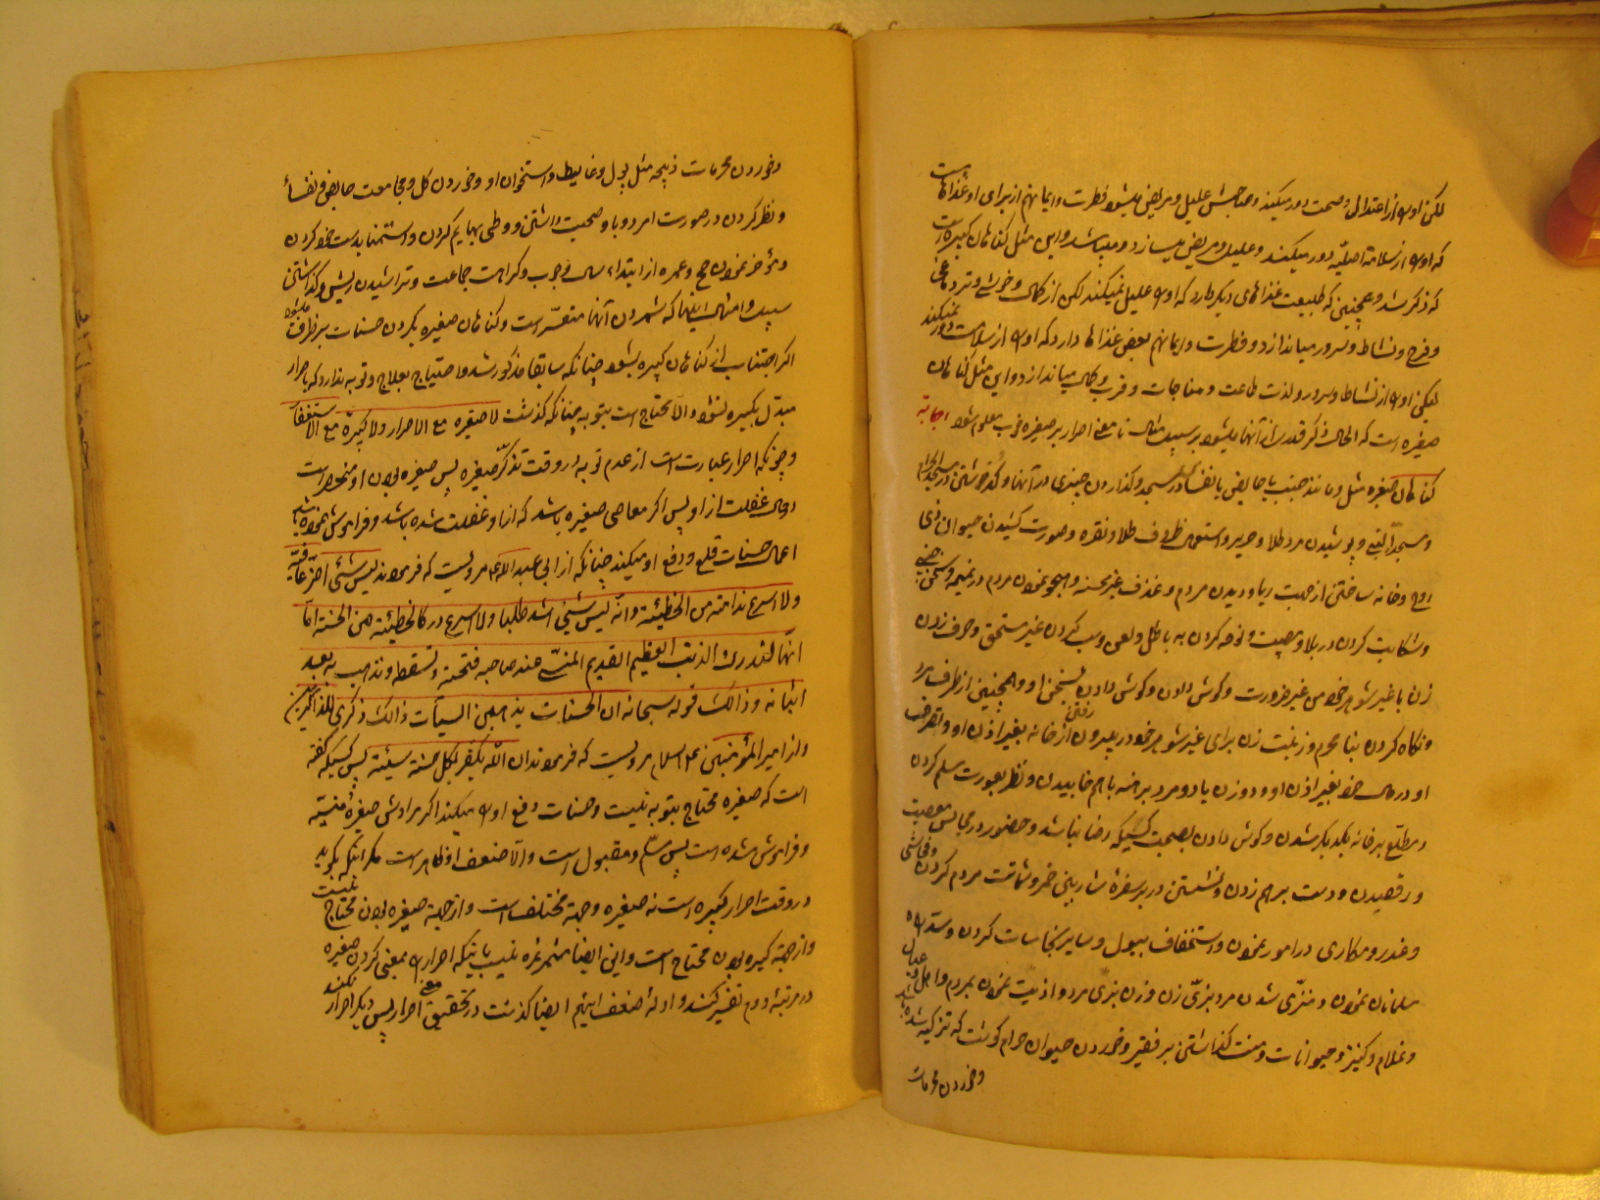 لکن او را از اعتدال و صحت دور میکند و صاحبش علیل و مریض میشود فطرت و ایمان هم از برای او غذاهاست
که او را از سلامة اصلیّه دور میکند و علیل و مریض میسازد و میباشد و این مثل کناهان کبیره است
که ذکر شد و همچنین که طبیعت غذاهای دیکر دارد که او را علیل نمیکند لکن از کمال و خوشی و تردماغی
و فرح و نشاط و سرور میاندازد و فطرت و ایمان هم بعض غذاها دارد که او را از سلامت دور نمیکند
لیکن او را از نشاط و سرور و لذت طاعت و مناجات و قرب و کمال میاندازد و این مثل کناهان
صغیره است که الحال ذکر قدری از آنها میشود بر سبیل مثال تا معنی اصرار بر صغیره خوب معلوم شود
کناهان صغیره مثل و مانند جنب یا حایض یا نفسا در مسجد و کذاردن چیزی در آنها و کذشتن در مسجد الحرام
و مسجد النبی و پوشیدن مرد طلا و حریر و استعمال ظروف طلا و نقره و صورت کشیدن حیوان ذی
روح و خانه ساختن از جهت ریا و دیدن مردم و قذف غیر محسنه و هجو نمودن مردم در نمیمه و سخن چینی
و شکایت کردن در بلا و مصیبت و نوحه کردن به باطل و لعن و سب کردن غیر مستحق و حرف زدن
زن با غیر شوهر خود من غیر ضرورت و کوش دادن و کوش دادن بسخن او و همچنین از طرف مرد
و نکاه کردن بنا محرم و زینت زن برای غیر شوهر خود و بیرون رفتن از خانه بغیر اذن او و تصرف
او در مال خود بغیر اذن او و دو زن یا دو مرد برهنه با هم خابیدن و نظر بعورت مسلم کردن
و مطلع بر خانه یکدیکر شدن و کوش دادن بصحبت کسیکه رضا نباشد و حضور در مجالس معصیت
و رقصیدن و دست بر هم زدن و نشستن در بر سفرهٔ شاربین خمر و شماتت مردم کردن و فحاشی
و غدر و مکاری در امور نمودن و استخفاف ببول و سایر نجاسات کردن
مسلمانان نمودن و متزیّ شدن مرد بزیّ زن و زن بزی مرد و اذیت نمودن بمردم و اهل و عیال
و غلام و کنیز و حیوانات و منت کذاشتن بر فقیر و خوردن حیوان حرام کوشت که تزکیه شده باشد
و خوردن محرمات
و خوردن محرمات ذبیحه مثل بول و غایط و استخوان او و خوردن کل و مجامعت حایض و نفساء
و نظر کردن در صورت امرد و با او صحبت داشتن و وطی بهایم کردن و استمنا بدست خود کردن
و مؤخر نمودن حج و عمره از ابتداء سال وجوب و کراهت جماعت و تراشیدن ریش و کذاشتن
سبیل و امثال اینها که شمردن آنها متعسّر است و کناهان صغیره بکردن حسنات برطرف میشود
اکر اجتناب از کناهان کبیره بشود چنانکه سابقا مذکور شد و احتیاج بعلاج و توبه ندارد که باصرار
مبدّل بکبیره نشود و الا محتاج است بتوبه چنانکه کذشت لا صغیرة مع الاصرار ولا کبیرة مع الاستغفار
و چونکه اصرار عبارت است از عدم توبه در وقت تذکّر صغیره پس صغیره بودن او منحصر است
بحال غفلت از او پس اکر معاصی صغیره باشد که از او غفلت شده باشد و فراموش نموده باشد
اعمال حسنات قلع و دفع او میکند چنانکه از ابی عبد الله ع مرویست که فرمودند لیس شیء اضرّ عاقبة
ولا اسرع ندامة من الخطیئة وانّه لیس شیء اشد طلبا ولا اسرع درکا للخطیئة من الحسنة اما
انّها لتدرک الذنب العظیم القدیم المنسیّ عند صاحبه فتحته و تسقطه و تذهب به بعد
اثباته و ذالک قوله سبحانه ان الحسنات یذهبن السیئات ذالک ذکری للذاکرین
و از امیر المؤمنین علیه السلام مرویست که فرمودند ان الله یکفّر بکل حسنة سیئة پس کسیکه کفته
است که صغیره محتاج بتوبه نیست و حسنات دفع او را میکند اکر مرادش صغیرهٔ منسیّه
و فراموش شده است پس مسلّم و مقبول است و الا ضعف او ظاهر است مکر اینکه بکوید
در وقت اصرار کبیره است نه صغیره و جهة مختلف است و از جهة صغیره بودن محتاج نیست
و از جهة کبیره بودن محتاج است و این ایضا مثمر ثمره نیست با اینکه اصرار را بمعنی کردن صغیره
در مرتبهٔ دوم تفسیر کنند و ادلهٔ ضعف این هم ایضا کذشت در تحقیق معنی اصرار پس دیکر اصرار نکنند